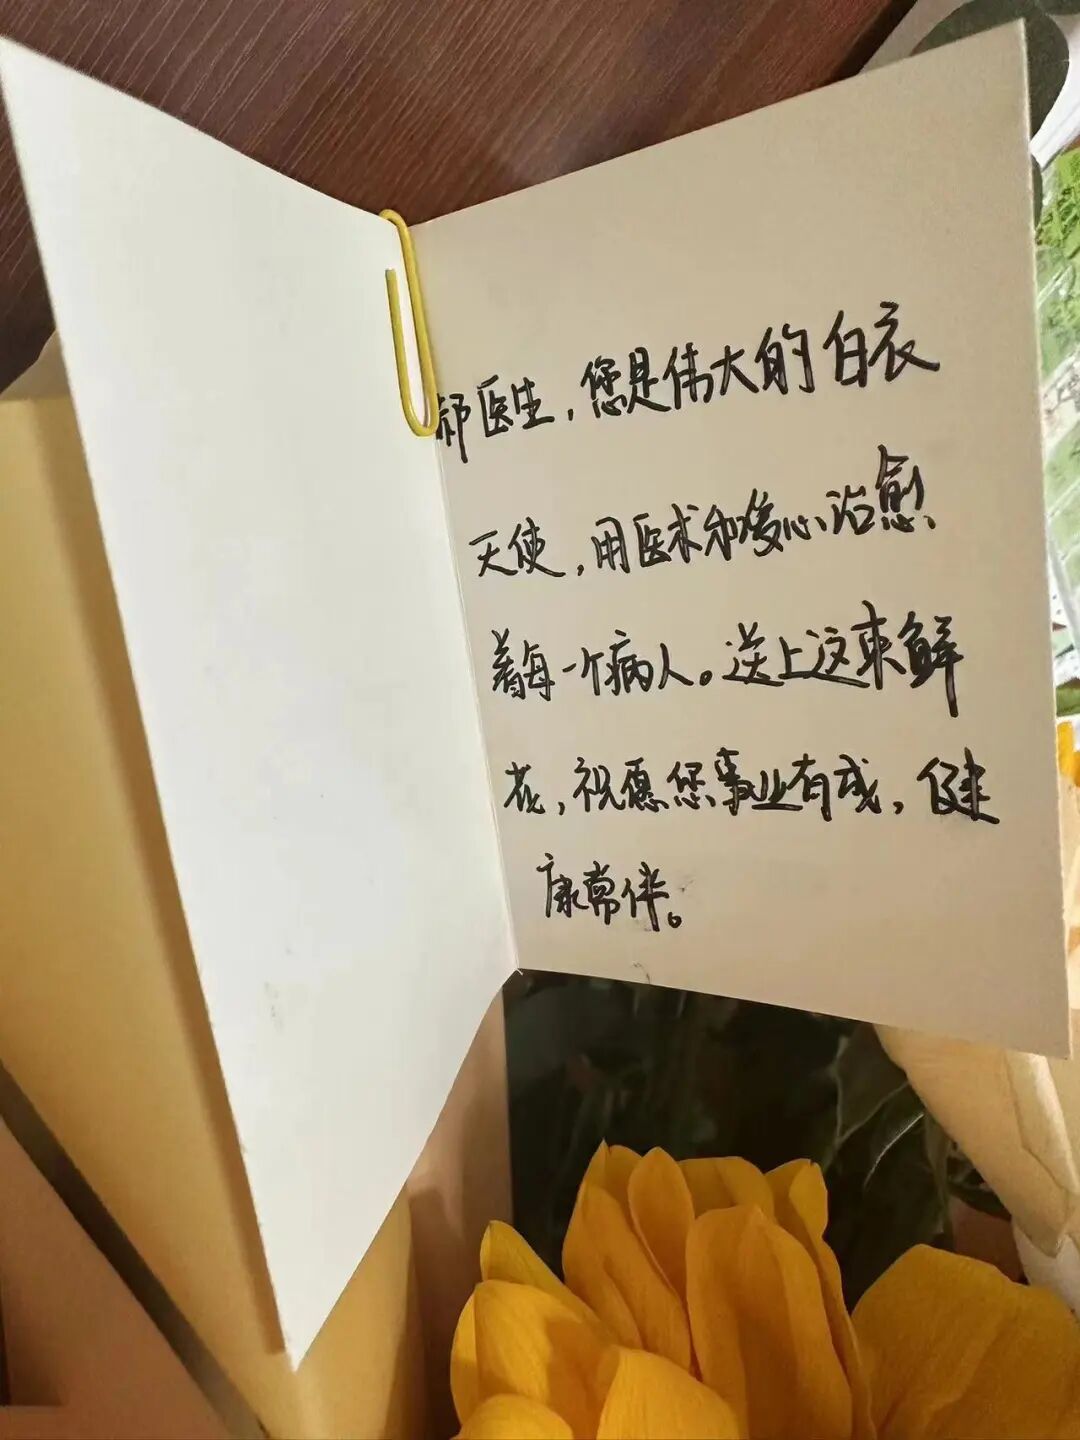 祁医生，您是伟大的白衣
天使，用医术和爱心治愈
着每一个病人。送上这束鲜
花，祝愿您事业有成，健
康常伴。